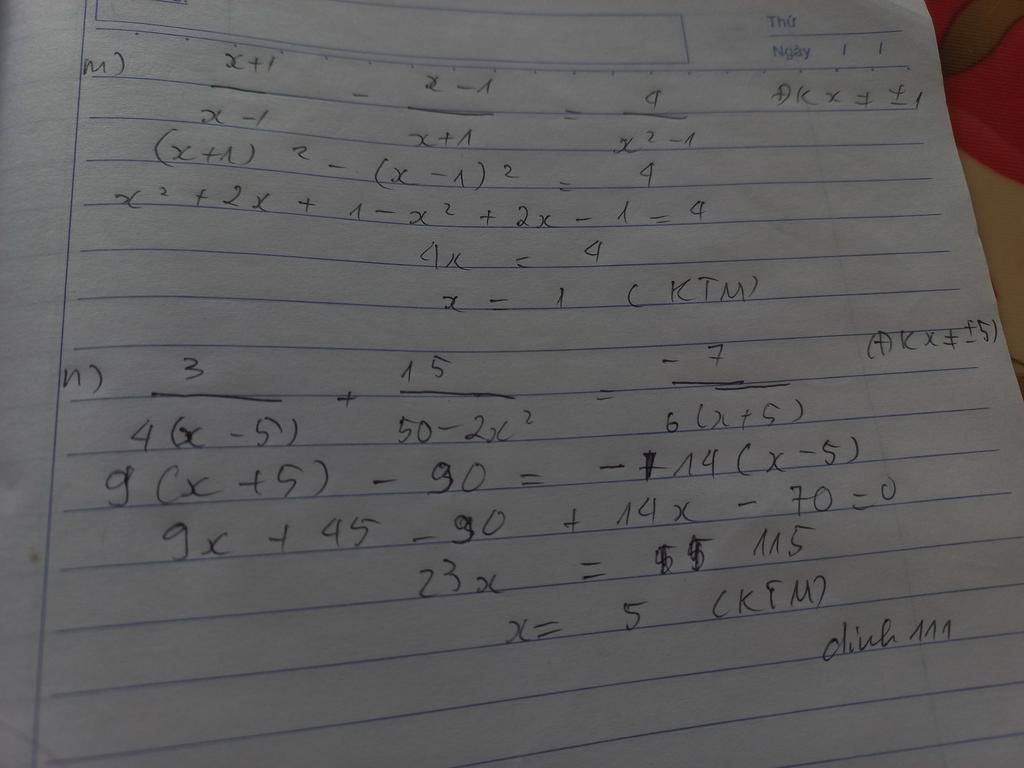 Thứ
Ngày / /
m) x+1 / x-1 - x-1 / x+1 = 4 / x²-1 ĐK x ≠ ±1
(x+1)² - (x-1)² = 4
x² + 2x + 1 - x² + 2x - 1 = 4
4x = 4
x = 1 (KTM)
n) 3 / 4(x-5) + 15 / 50-2x² = -7 / 6(x+5) (ĐK x ≠ ±5)
9(x+5) - 90 = -14(x-5)
9x + 45 - 90 + 14x - 70 = 0
23x = 115
x = 5 (KTM)
dinh 111